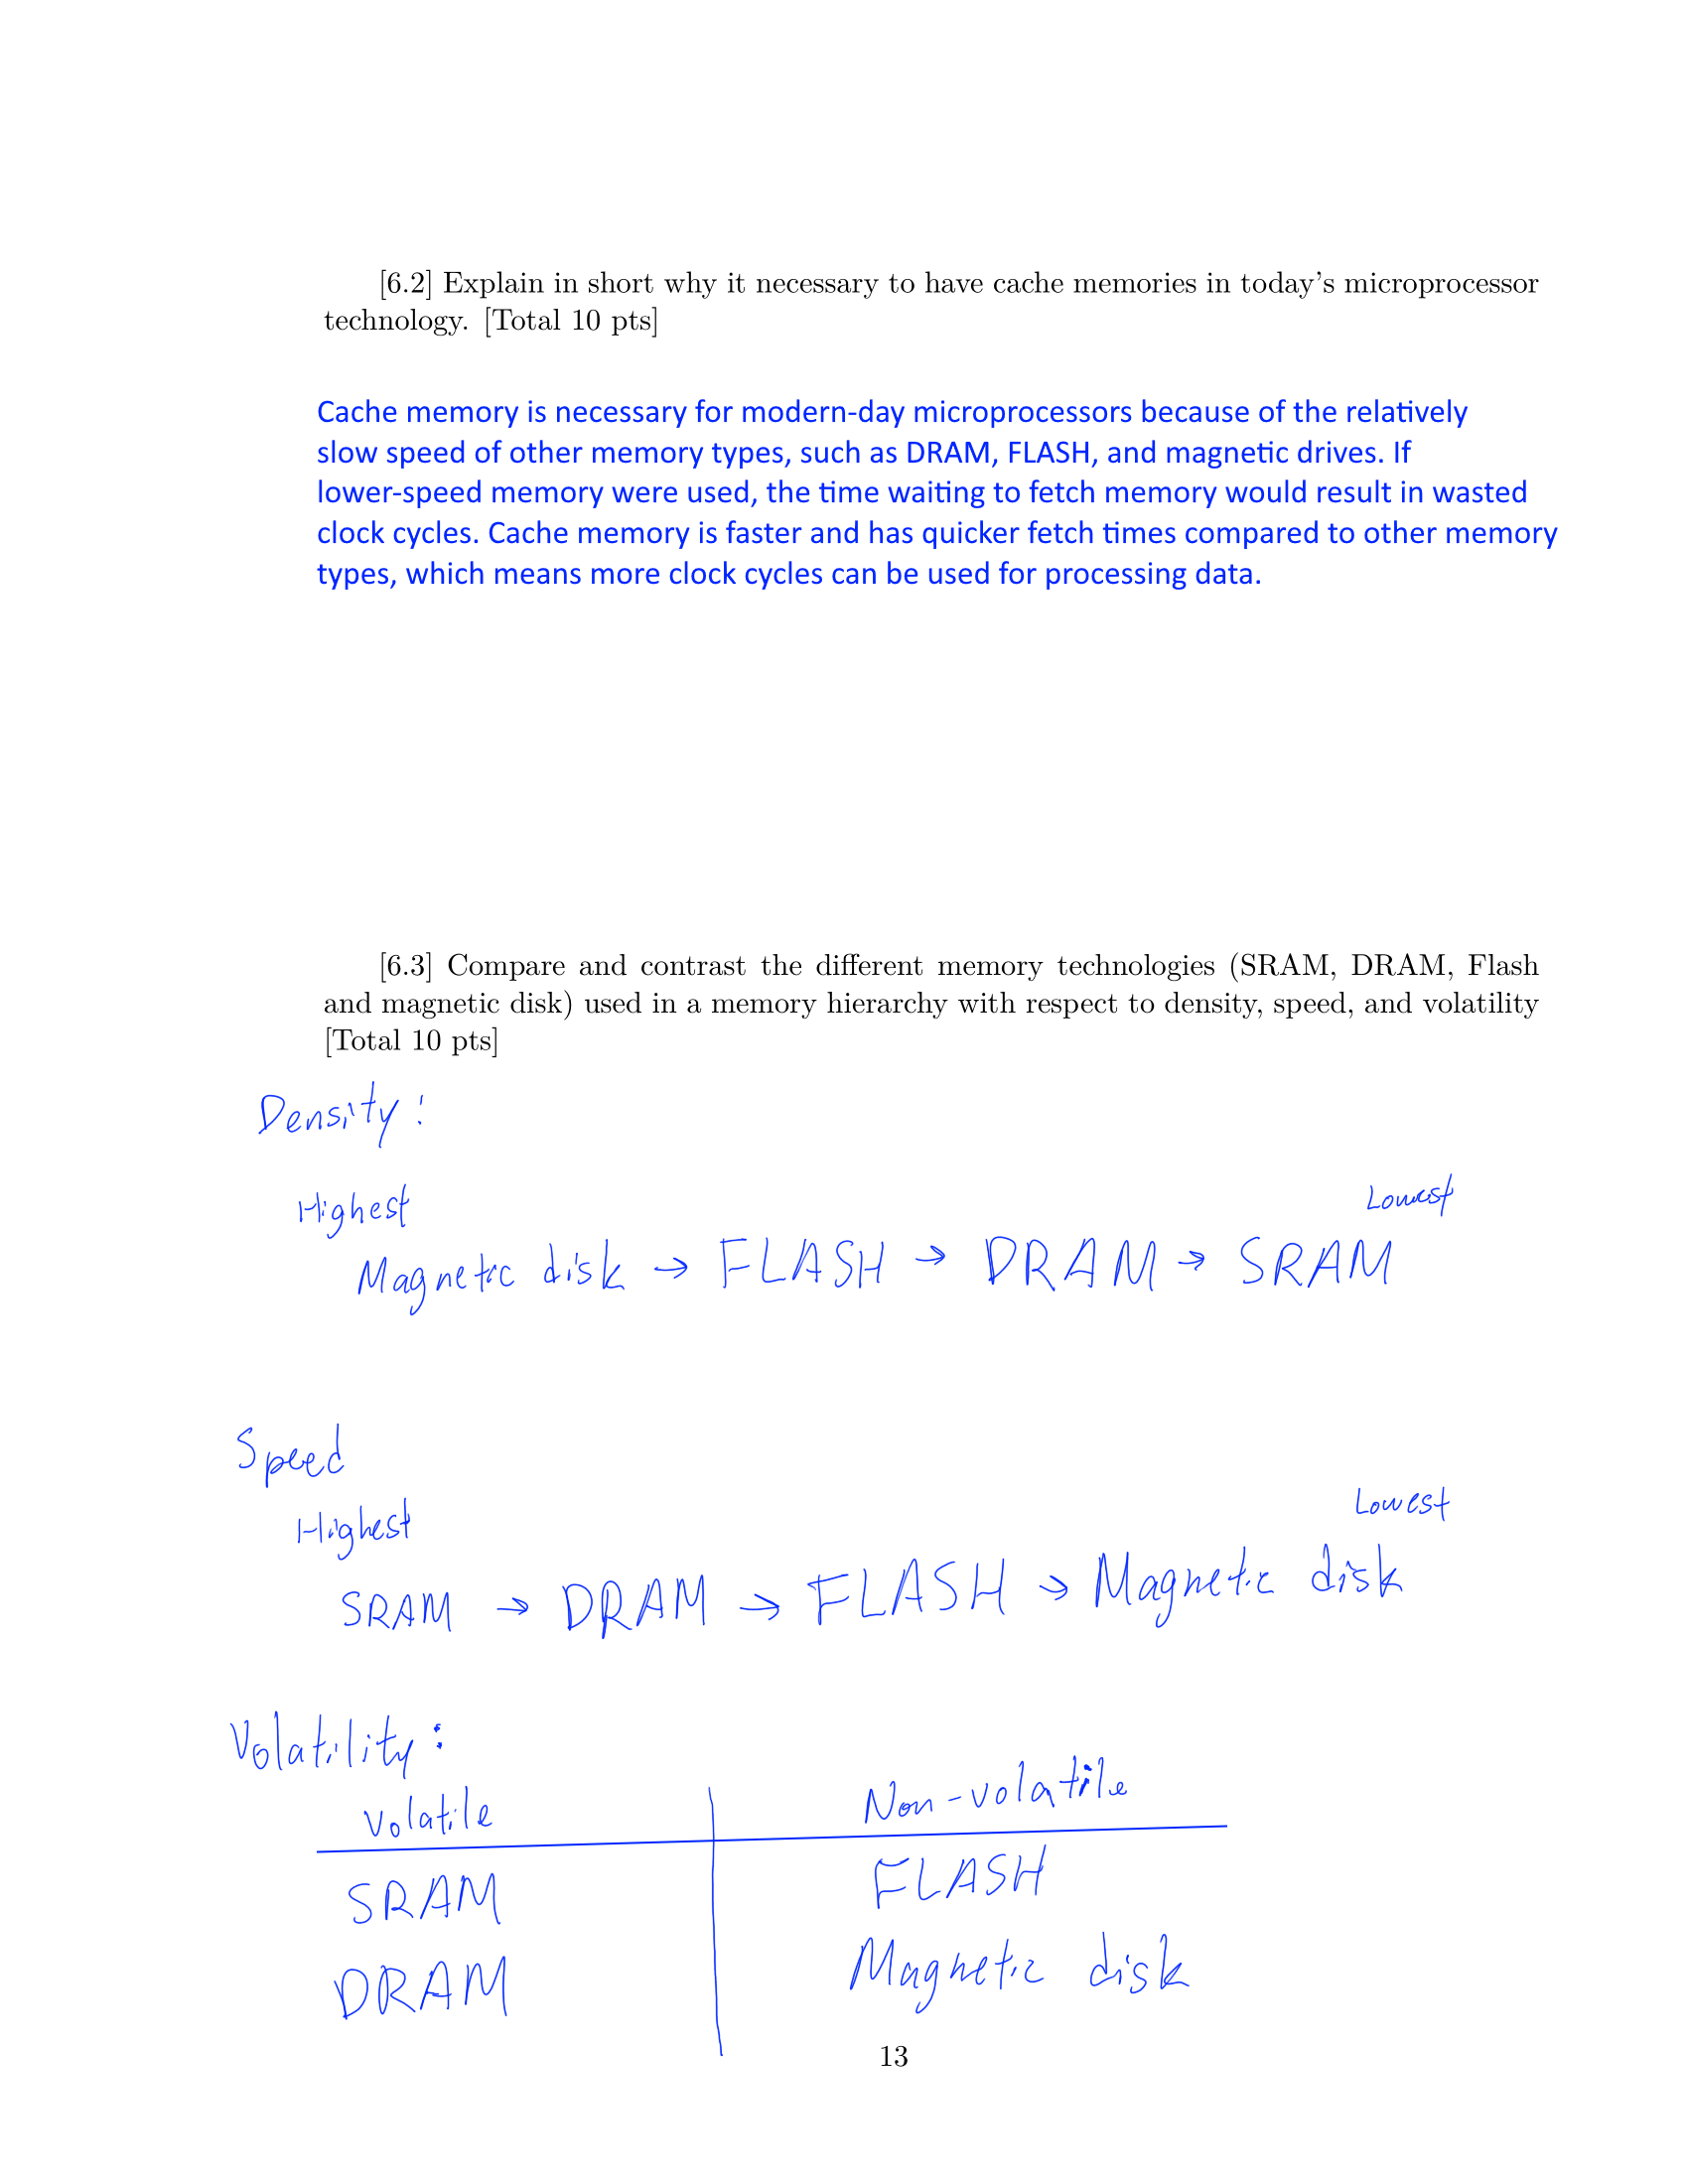 [6.2] Explain in short why it necessary to have cache memories in today's microprocessor
technology. [Total 10 pts]
Cache memory is necessary for modern-day microprocessors because of the relatively
slow speed of other memory types, such as DRAM, FLASH, and magnetic drives. If
lower-speed memory were used, the time waiting to fetch memory would result in wasted
clock cycles. Cache memory is faster and has quicker fetch times compared to other memory
types, which means more clock cycles can be used for processing data.
[6.3] Compare and contrast the different memory technologies (SRAM, DRAM, Flash
and magnetic disk) used in a memory hierarchy with respect to density, speed, and volatility
[Total 10 pts]
Density:
Highest Lowest
Magnetic disk → FLASH → DRAM → SRAM
Speed
Highest Lowest
SRAM → DRAM → FLASH → Magnetic disk
Volatility:
Volatile Non-volatile
SRAM FLASH
DRAM Magnetic disk
13